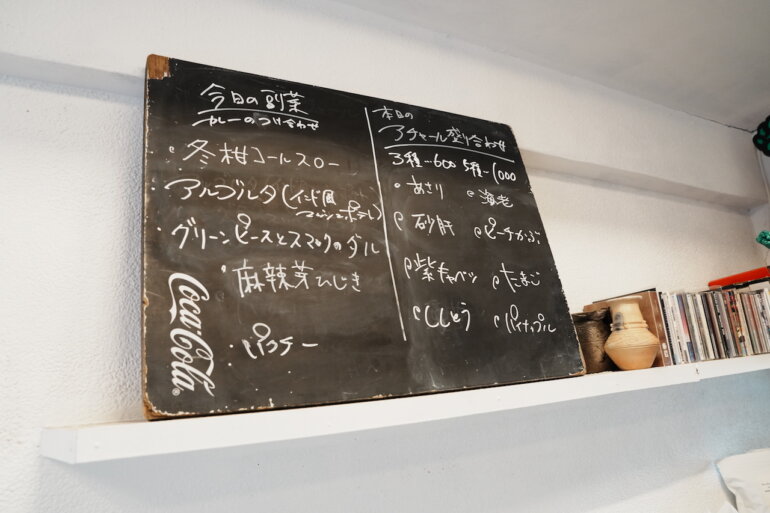 今日の副菜
カレーのつけ合わせ
・冬柑コールスロー
・アルゴルタ(インド風
マッシュポテト)
・グリーンピースとスマックのダル
・麻辣芽ひじき
・パクチー
Coca-Cola
本日の
アチャール盛り合わせ
3種…600 5種…1000
・あさり
・海老
・砂肝
・ピーチかぶ
・紫キャベツ
・たまご
・ししとう
・パイナップル